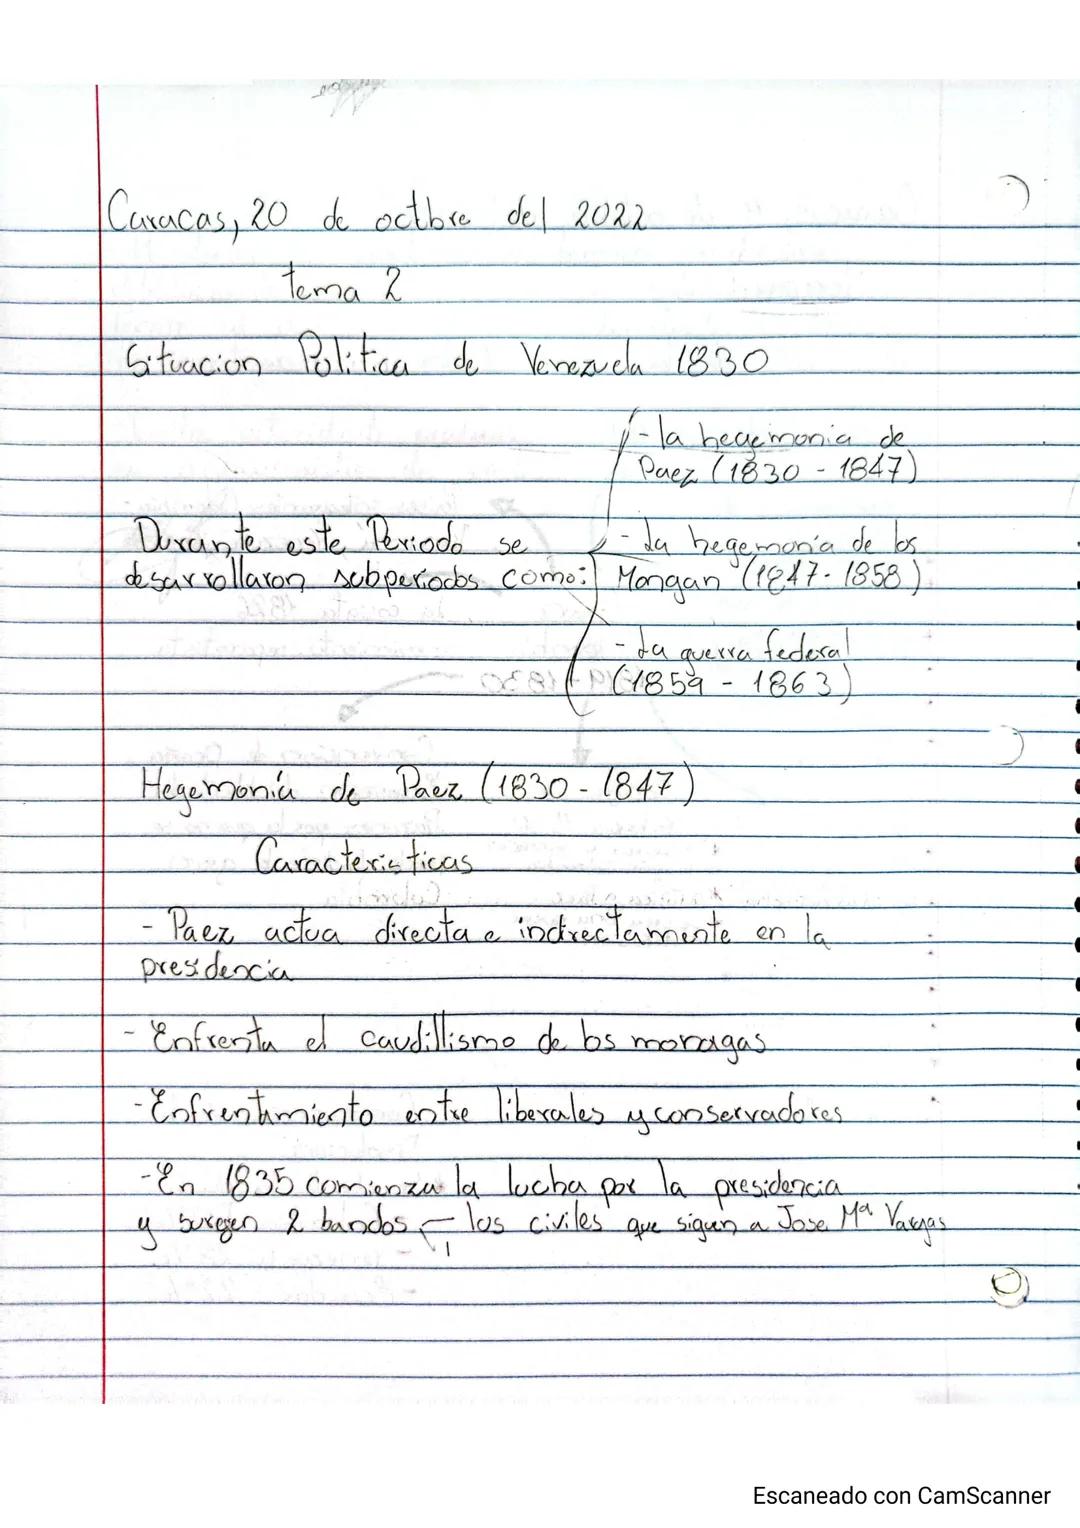 Caracas, 20 de octbre del 2022
tema 2
Situacion Politica de Venezuela 1830
- la hegemonia de
Paez (1830 - 1847)
Durante este Periodo se
desarrollaron subperiodos como:
- La hegemonia de los
Mongan (1847 - 1858)
- La guerra federal
(1859 - 1863)
Hegemonia de Paez (1830 - 1847)
Caracteristicas
- Paez actua directa e indirectamente en la
presidencia
- Enfrenta el caudillismo de los monagas
- Enfrentamiento entre liberales y conservadores
- En 1835 comienza la lucha por la presidencia
y surgen 2 bandos, 1 los civiles que sigun a Jose Mª Vargas
Escaneado con CamScanner